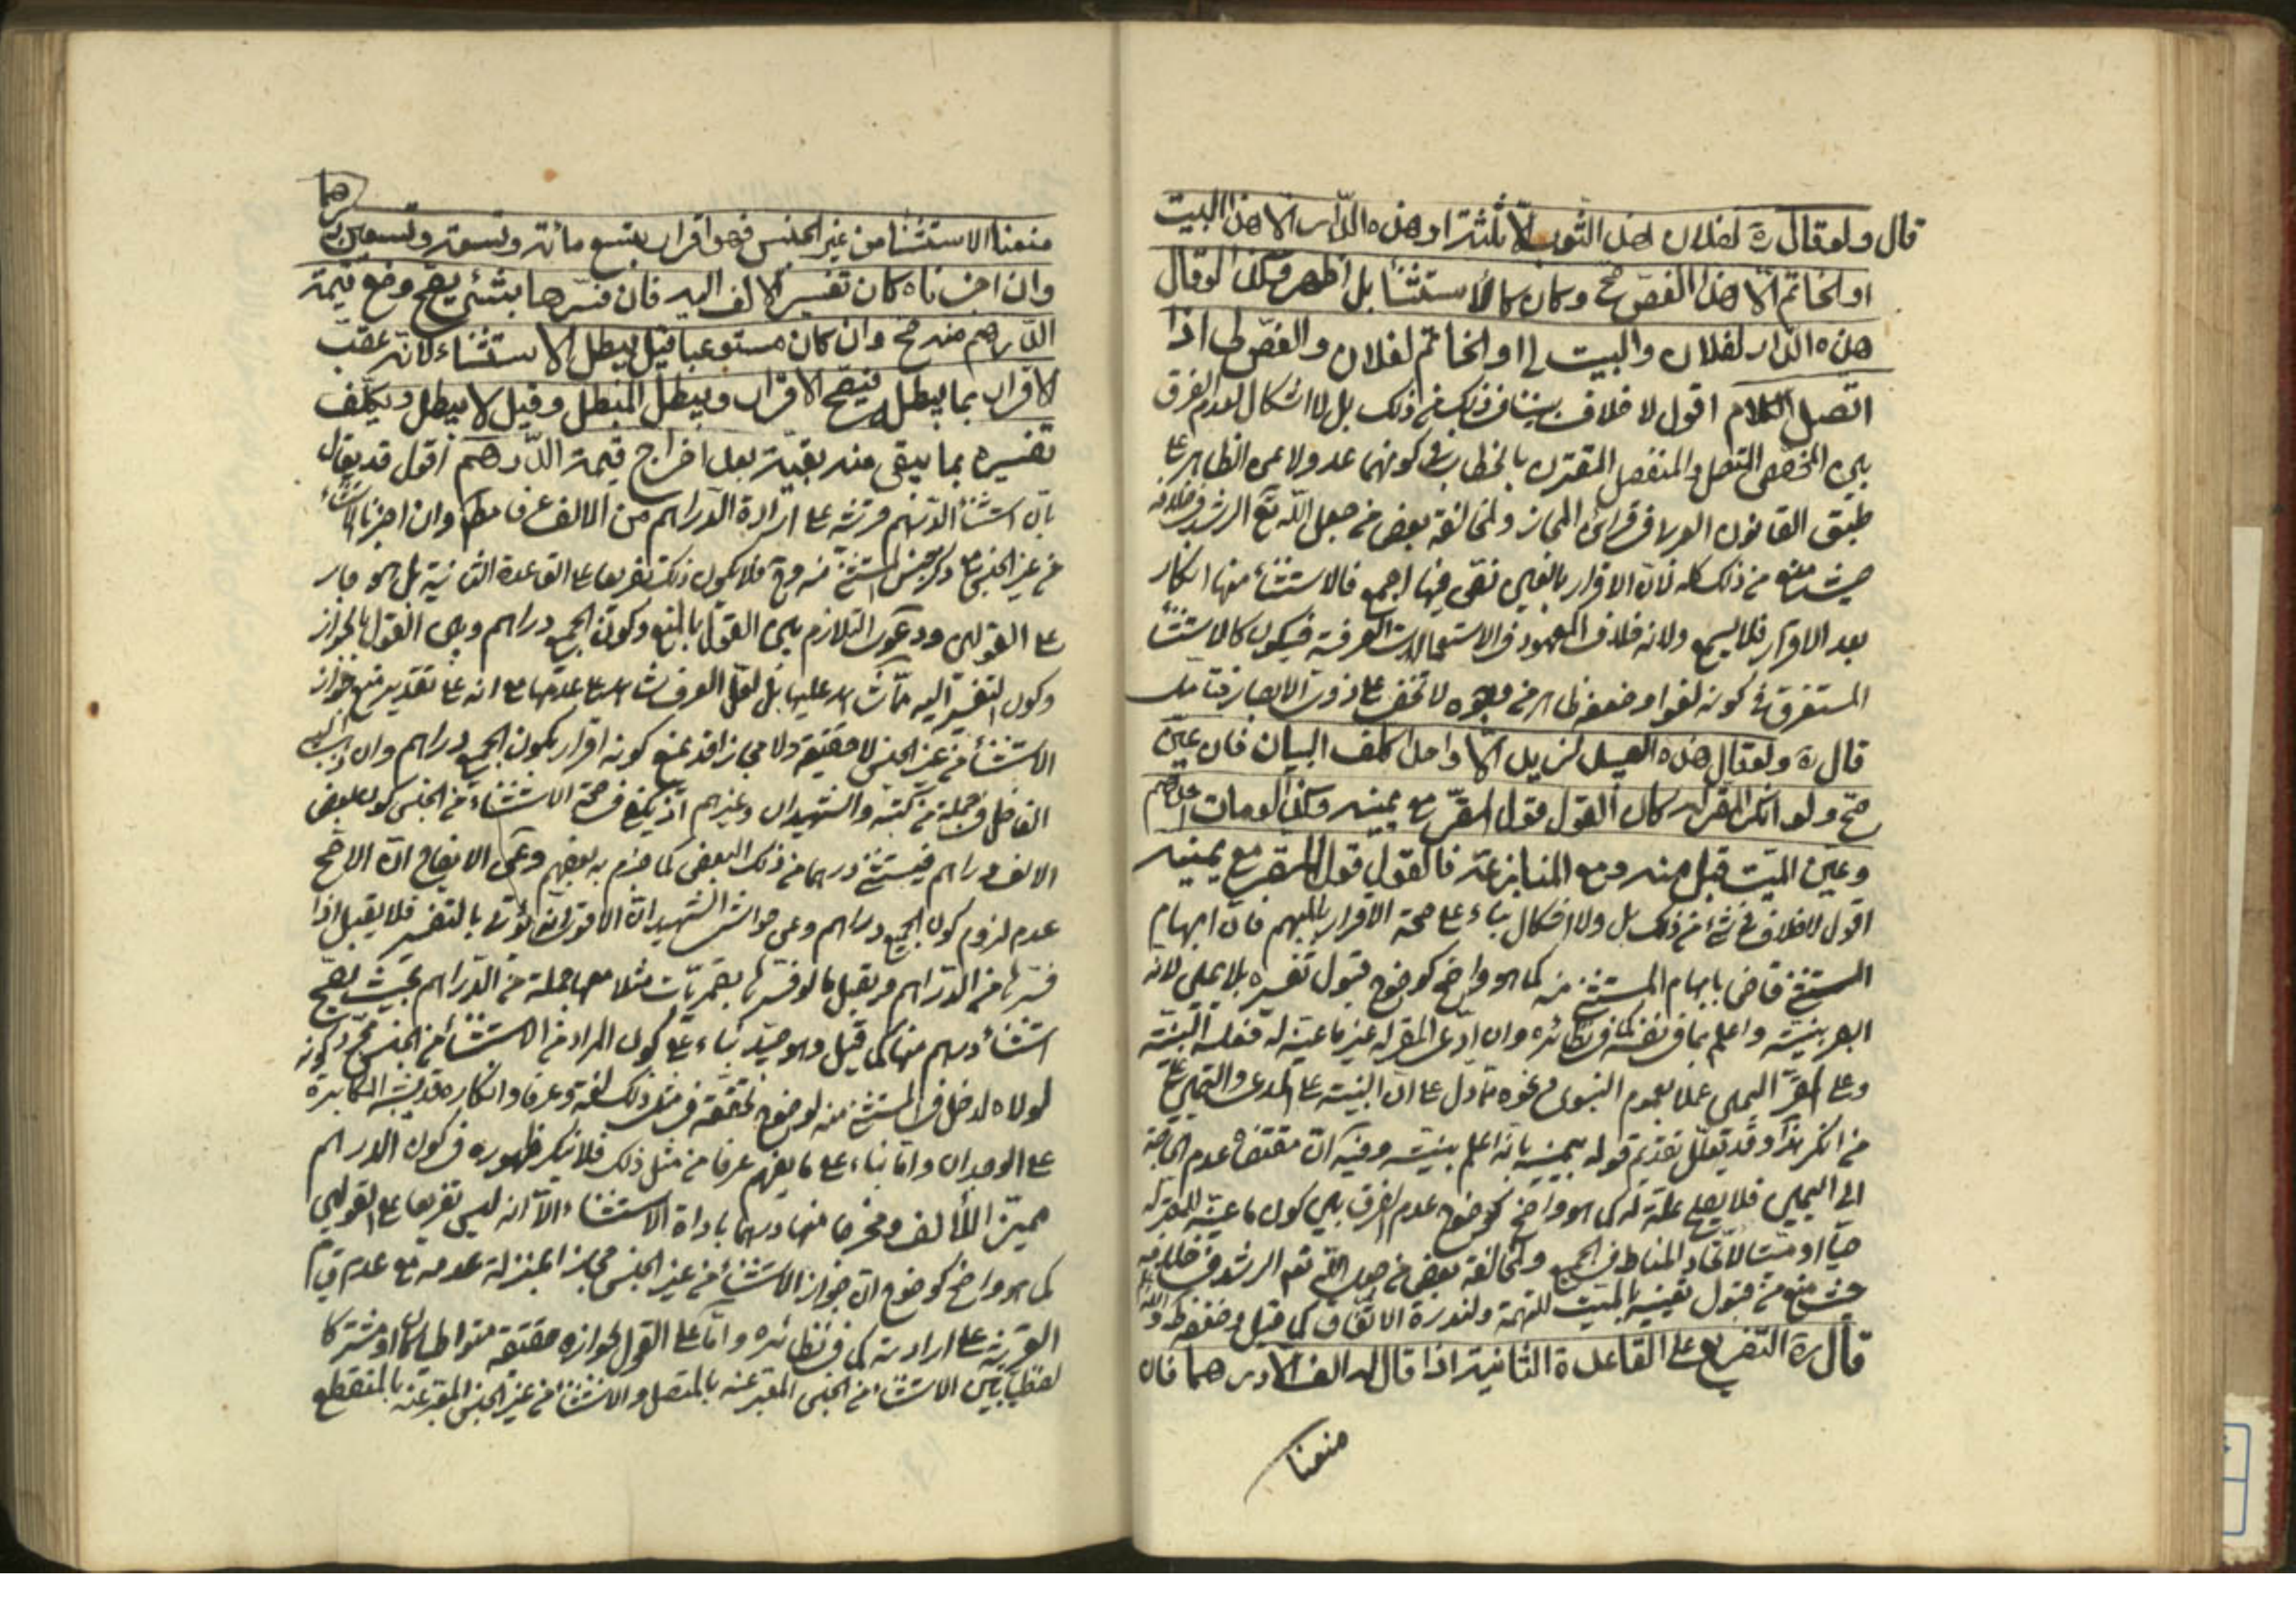 قال ولو قال ره لفلان هذا الثوب الا ثلثه او هذه الدار الا هذا البيت
او الخاتم الا هذا الفص صح وكان كالاستثنا بل اظهر وكذا لو قال
هذه الدار لفلان والبيت لي او الخاتم لفلان والفص لي اذا
اتصل الكلام اقول لا خلاف بيننا في ذلك بل لا اشكال لعدم الفرق
بين المخصص المتصل والمنفصل المقترن بالخطاب في كونهما عدولا عن الظاهر على
طبق القانون العرفي قرائن المجاز ولمخالفة بعض من جعل الله تع الرشد في خلافه
حيث منع من ذلك كله لان الاقرار بالعين نص فيها اجمع فالاستثناء منها انكار
بعد الاقرار فلا يسمع ولانه خلاف المعهود في الاستعمالات العرفية فيكون كالاستثنا
المستغرق في كونه لغوا وضعفه ظاهر من وجوه لا تخفى على ذوي الابصار فتامل
قال ره ولو قال هذه العبيد لزيد الا واحدا كلف البيان فان عين
صح ولو انكر المقر له كان القول قول المقر مع يمينه وكذا لو مات احدهم
وعين الميت قبل منه ومع المنازعة فالقول قول المقر مع يمينه
اقول لا خلاف في شئ من ذلك بل ولا اشكال بناء على صحة الاقرار بالمبهم فان ابهام
المستثنى قاض بابهام المستثنى منه كما هو واضح كوضوح قبول تفسيره بلا يمين لانه
ابصر بنيته واعلم بما في نفسه كما في نظائره وان ادعى المقر له غير ما عينه له فعليه البينة
وعلى المقر اليمين عملا بعموم النبوي ونحوه مما دل على ان البينة على المدعي واليمين على
من انكر هذا وقد يعلل تقديم قوله بيمينه بانه اعلم بنيته وفيه ان مقتضاه عدم الحاجة
الى اليمين فلا يصلح علة له كما هو واضح كوضوح عدم الفرق بين كون ما عينه للمقر له
حيا او ميتا لاتحاد المناط في الجميع ولمخالفة بعض من جعل الله تع الرشد في خلافه
حيث منع من قبول تفسيره بالميت للتهمة ولندرة الاتفاق كما قيل وضعفه ظ والله العالم
قال ره التفريع على القاعدة الثانية اذا قال له الف الا درهما فان
منعنا
منعنا الاستثنا من غير الجنس فهو اقرار بتسع مائة وتسعة وتسعين درهما
وان اجزناه كان تفسير الالف اليه فان فسرها بشئ يصح وضع قيمة
الدرهم منه صح وان كان مستوعبا قيل يبطل الاستثناء لانه عقب
الاقرار بما يبطله فيصح الاقرار ويبطل المبطل وقيل لا يبطل ويكلف
تفسيره بما يبقى منه بقية بعد اخراج قيمة الدرهم اقول قد يقال
بان استثنا الدرهم قرينة على ارادة الدراهم من الالف عرفا مط وان اجزنا الاستثناء
من غير الجنس مع ذكر جنس المستثنى منه وح فلا يكون ذلك تفريعا على القاعدة الثانية بل هو جار
على القولين ودعوى التلازم بين القول بالمنع وكون الجميع دراهم وبين القول بالجواز
وكون التفسير اليه مما لا شاهد عليها بل لعل العرف شاهد على عدمها مع انه على تقدير منع جواز
الاستثناء من غير الجنس لا حقيقة ولا مجازا قد يمنع كونه اقرار بكون الجميع دراهم وان ذهب اليه
الفاضل في جملة من كتبه والشهيدان وغيرهم اذ يكفي في صحة الاستثناء من الجنس كون بعض
الالف دراهم فيستثنى درهما من ذلك البعض كما جزم به بعضهم وعن الايضاح ان الاصح
عدم لزوم كون الجميع دراهم وعن حواشي الشهيد ان الاقوى انه يؤخذ بالتفسير فلا يقبل اذا
فسرها من الدراهم ويقبل ما لو فسرها بقمريات مثلا معها جملة من الدراهم بحيث يصح
استثناء درهم منها كما قيل وهو جيد بناء على كون المراد من الاستثناء من الجنس مجرد كونه
لولاه لدخل في المستثنى منه لوضوح تحققه في مثل ذلك لغة وعرفا وانكاره قد يشبه المكابرة
على الوجدان واما بناء على ما يفهم عرفا من مثل ذلك فلا ينكر ظهوره في كون الدراهم
مميز الالف ومخرجا منها درهما باداة الاستثناء الا انه ليس تفريعا على القولين
كما هو واضح كوضوح ان جواز الاستثناء من غير الجنس مجازا بمنزلة عدمه مع عدم قيام
القرينة على ارادته كما في نظائره واما على القول بجوازه حقيقة متواطيا كان او مشتركا
لفظيا بين الاستثناء من الجنس المعبر عنه بالمتصل والاستثناء من غير الجنس المعبر عنه بالمنقطع